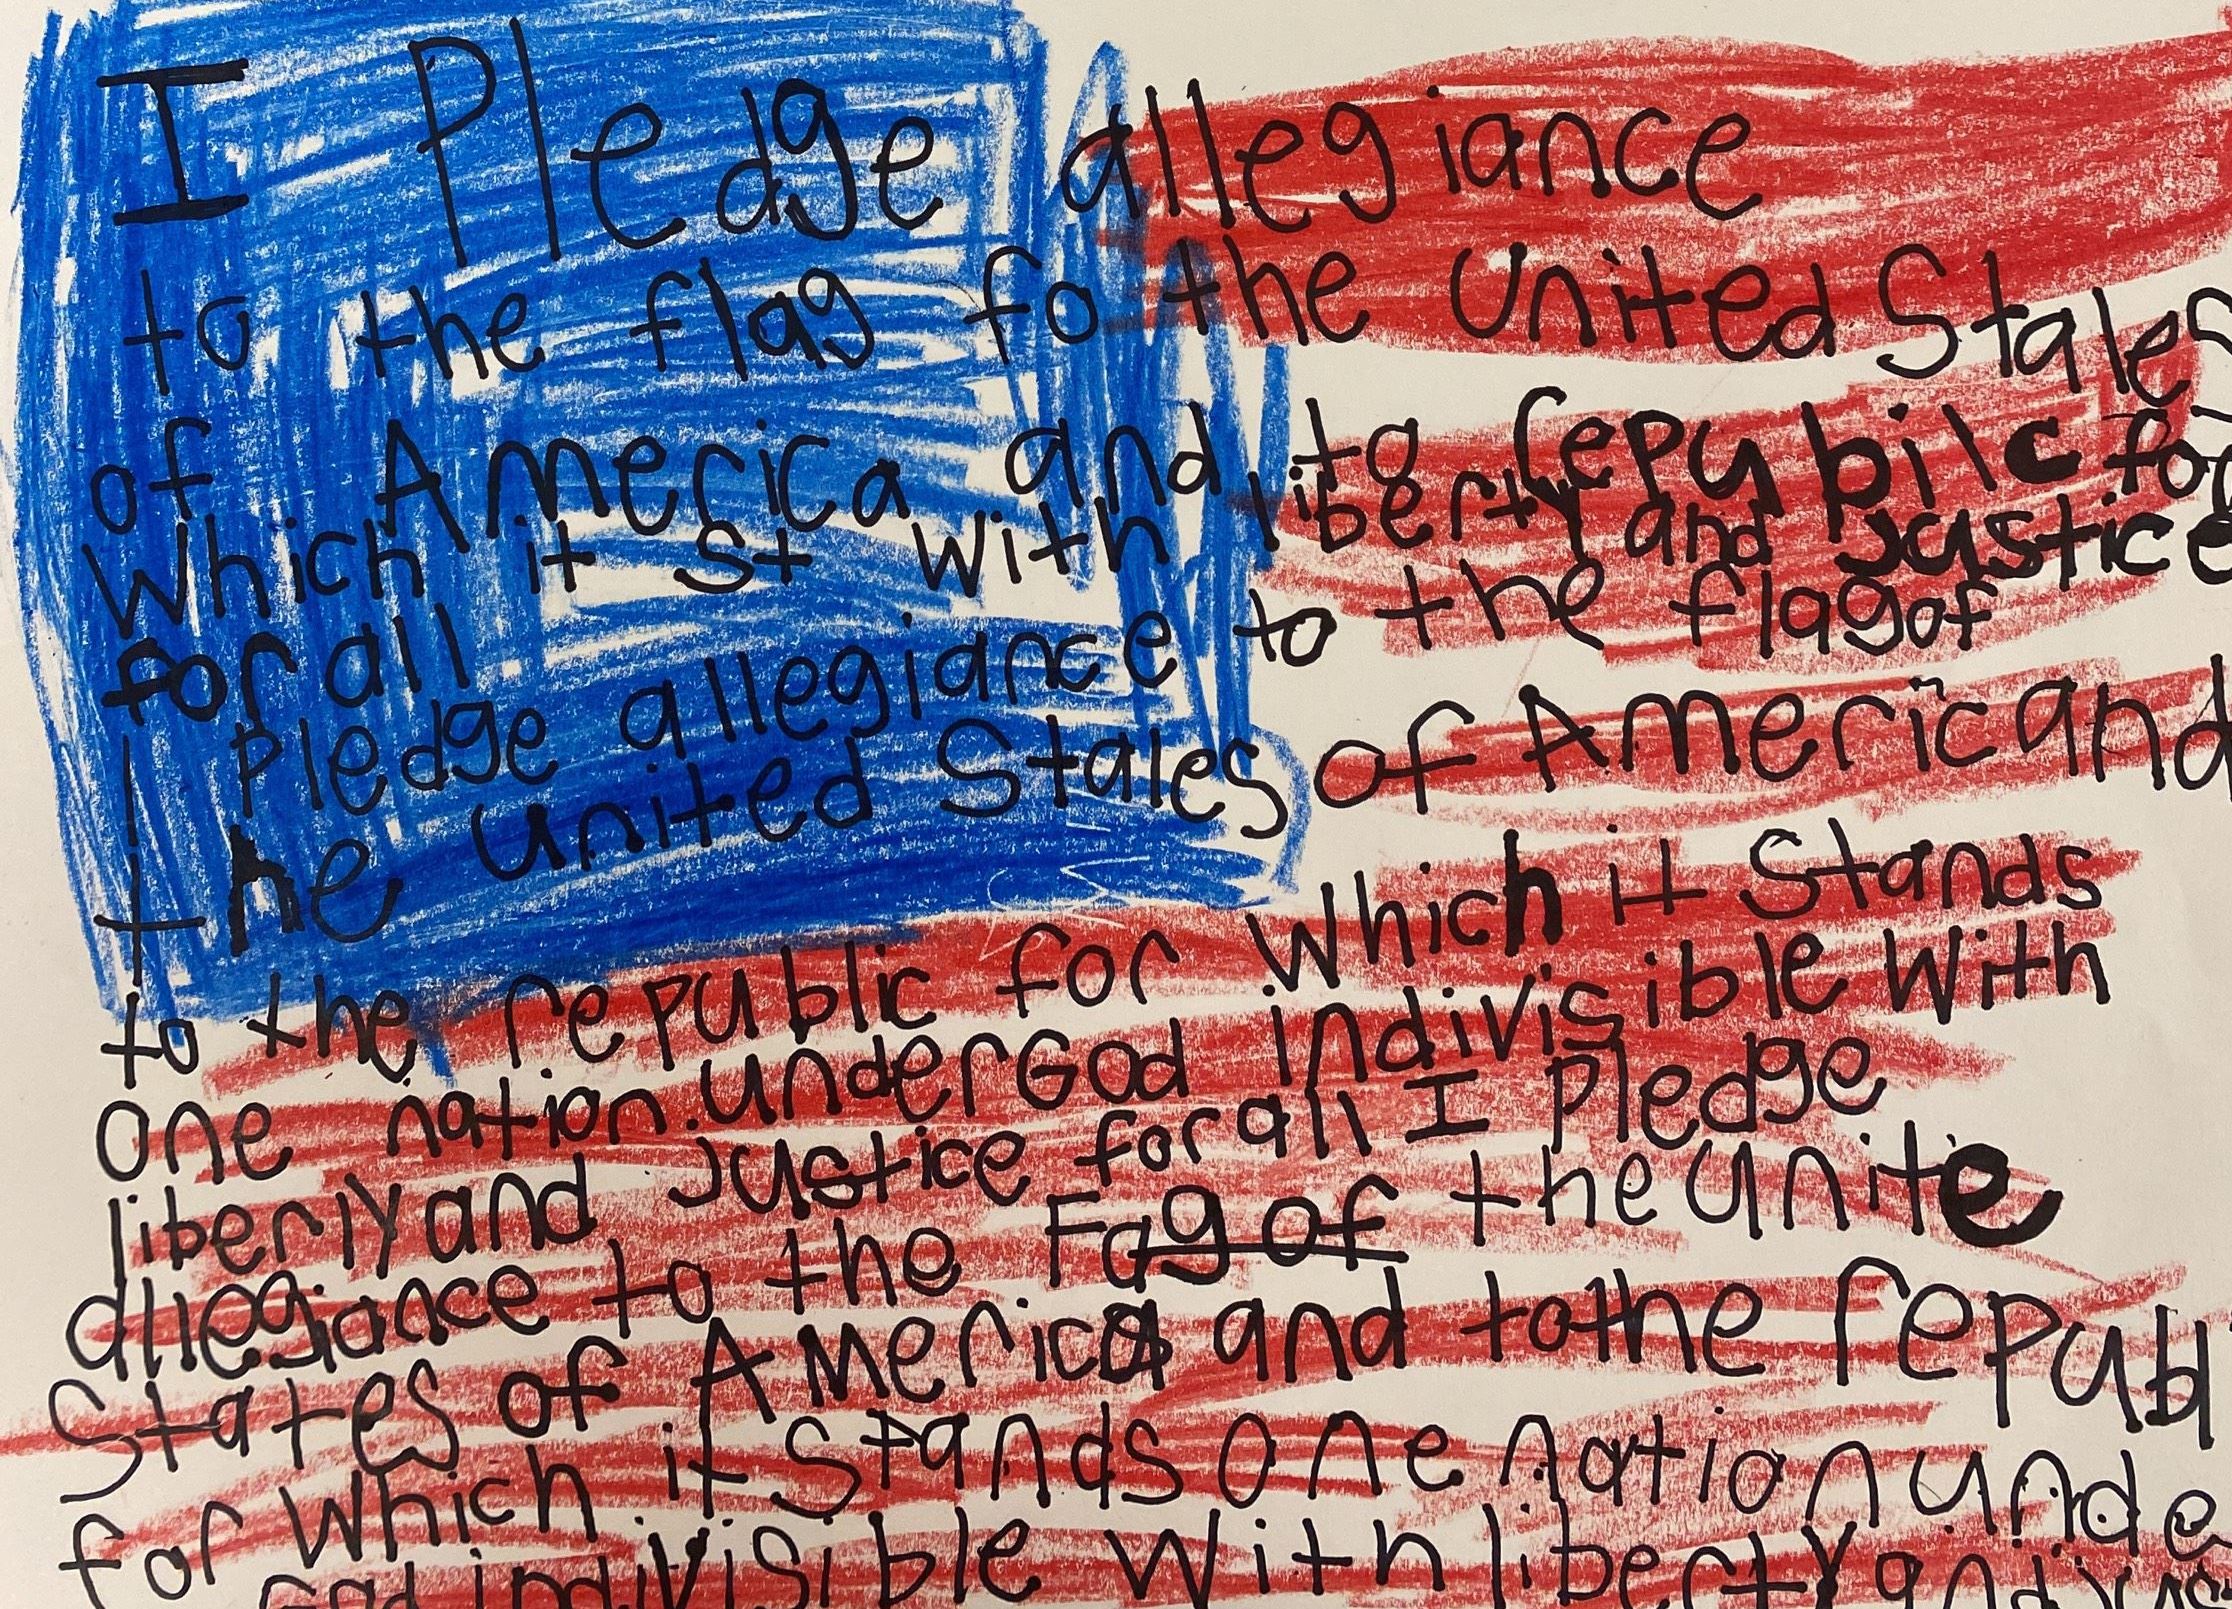 I Pledge allegiance
to the flag fo the United Stales
of America and to repubilc for
Which it st with liberty and Justice
for all
I Pledge allegiance to the flag of
the United Stales of Americand
to the republic for Which it Stands
one nation. under God indivisible With
liberly and Justice for all I Pledge
allegiance to the Fag of the Unite
States of America and to the republ
for Which it Stands one nation unde
God indivisible With liberty and jus